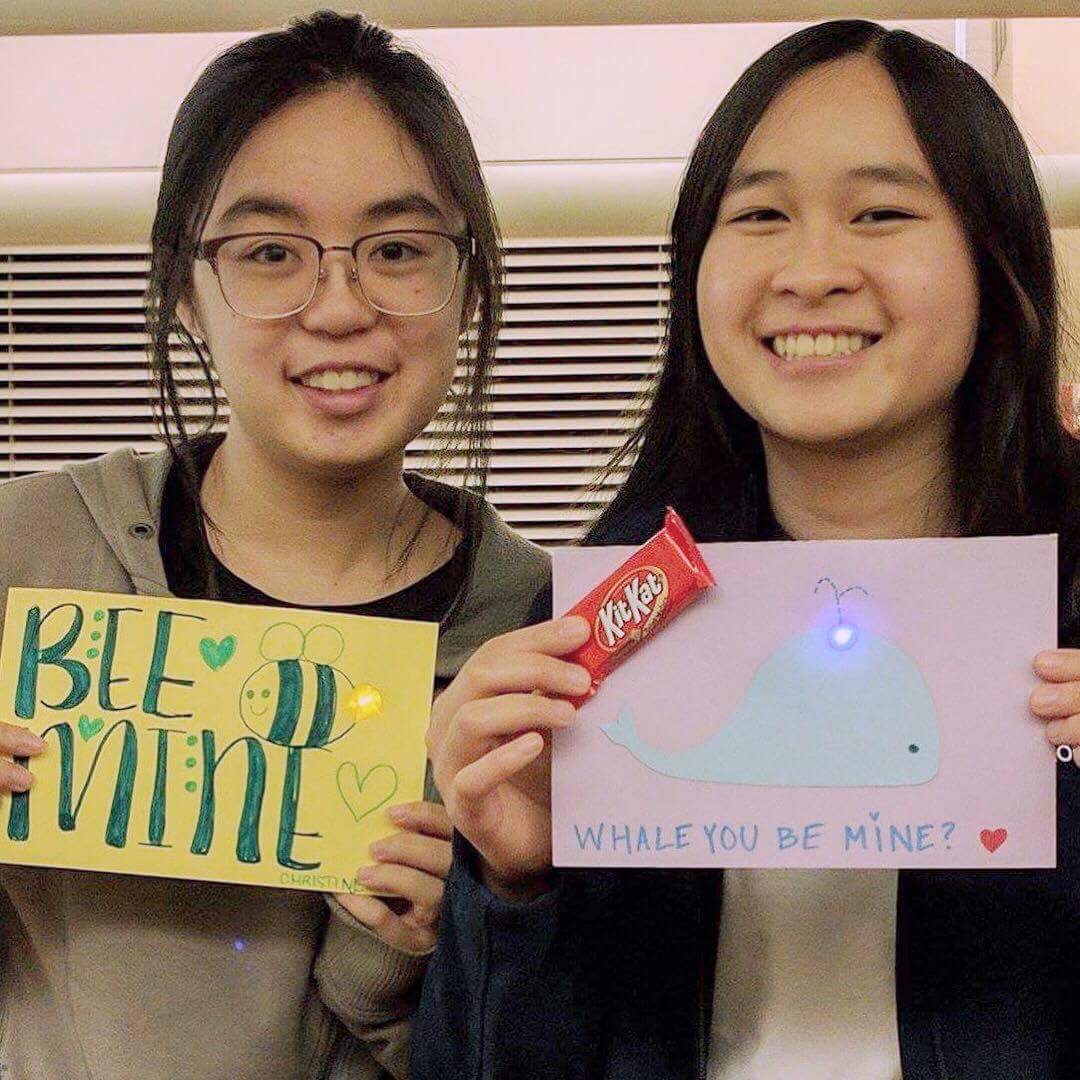 BEE
MINE
CHRISTINE
KitKat
WHALE YOU BE MINE?